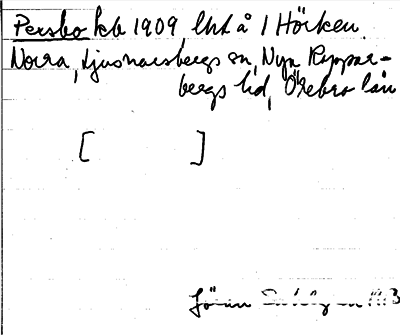 Persbo kb 1909, lht å 1 Hörken
Norra, Ljusnarsbergs sn, Nya Koppar-
bergs hd, Örebro län
[ ]
Jöran Sahlgren 1913